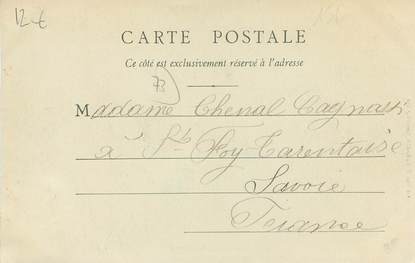 12€
CARTE POSTALE
Ce côté est exclusivement réservé à l'adresse
73
Madame Chenal Cagnassi
à Ste Foy Tarentaise
Savoie
France